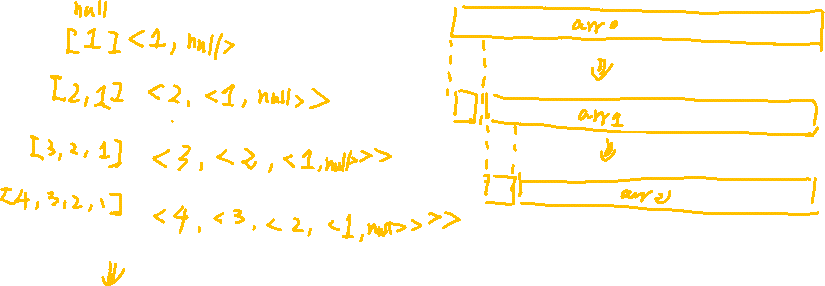 null
[1] <1, null>
[2,1] <2, <1, null>>
[3,2,1] <3, <2, <1,null>>>
[4,3,2,1] <4, <3, <2, <1,null>>>>
arr0
arr1
arr2